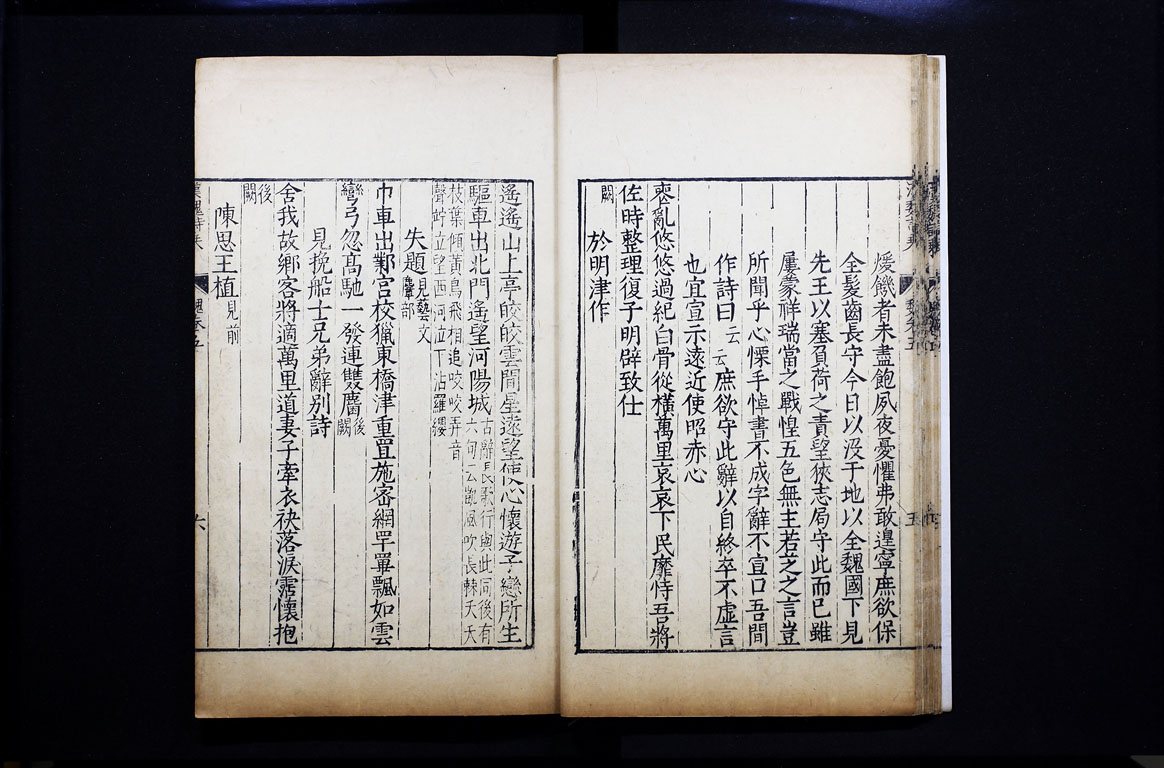 煖饑者未盡飽夙夜憂懼弗敢遑寧庶欲保
全髮齒長守今日以沒于地以全魏國下見
先王以塞負荷之責望狹志局守此而已雖
屢蒙祥瑞當之戰惶五色無主若芝之言豈
所聞乎心慄手悼書不成字辭不宣口吾間
作詩曰云云庶欲守此辭以自終卒不虛言
也宜宣示遠近使昭赤心
喪亂悠悠過紀白骨從橫萬里哀哀下民靡恃吾將
佐時整理復子明辟致仕
闕
於明津作
遙遙山上亭皎皎雲間星遠望使心懷遊子戀所生
驅車出北門遙望河陽城古辭長歌行與此同後有
六句云凱風吹長棘夭夭
枝葉傾黃鳥飛相追咬咬弄音
聲竚立望西河泣下沾羅纓
失題見藝文
麞部
巾車出鄴宮校獵東橋津重罝施密網罕畢飄如雲
彎弓忽高馳一發連雙麕後
闕
見挽船士兄弟辭別詩
舍我故鄉客將適萬里道妻子牽衣袂落淚霑懷抱
後
闕
陳思王植見前
魏卷五
六